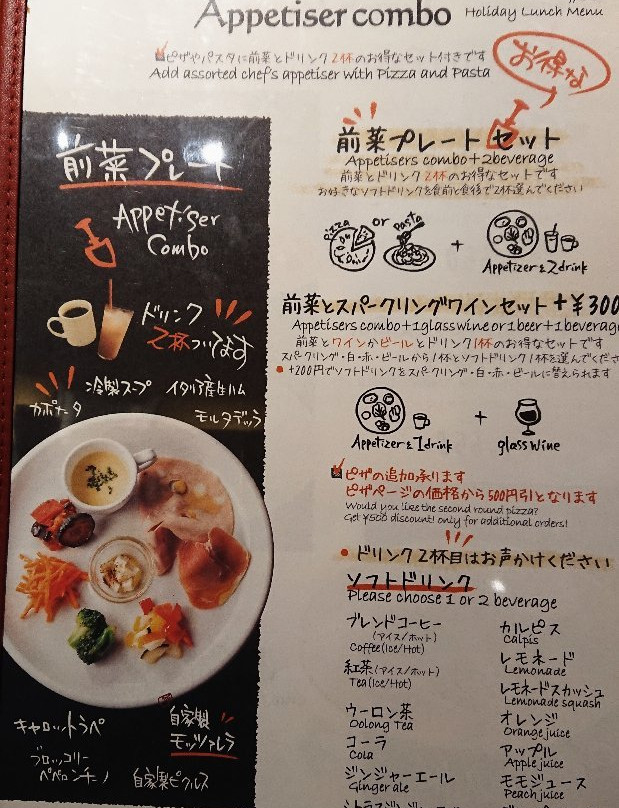 Appetiser combo
Holiday Lunch Menu
ピザやパスタに前菜とドリンク2杯のお得なセット付きです
Add assorted chef's appetiser with Pizza and Pasta
お得な
前菜プレート
Appetiser
Combo
ドリンク
2杯ついてます
冷製スープ
イタリア産生ハム
カポナータ
モルタデッラ
キャロットラペ
自家製
モッツァレラ
ブロッコリー
ペペロンチーノ
自家製ピクルス
前菜プレートセット
Appetisers combo+2beverage
前菜とドリンク2杯のお得なセットです
お好きなソフトドリンクを食前と食後で2杯選んでください
Pizza
or
Pasta
+
Appetizer & 2drink
前菜とスパークリングワインセット+¥300
Appetisers combo+1glasswine or 1beer+1beverage
前菜とワインかビールとドリンク1杯のお得なセットです
スパークリング・白・赤・ビールから1杯とソフトドリンク1杯を選んでくださ
+200円でソフトドリンクをスパークリング・白・赤・ビールに替えられます
+
Appetizer & 1drink
glass wine
ピザの追加承ります
ピザページの価格から500円引となります
Would you like the second round pizza?
Get ¥500 discount! only for additional orders!
ドリンク2杯目はお声かけください
ソフトドリンク
Please choose 1 or 2 beverage
ブレンドコーヒー
(アイス/ホット)
Coffee(Ice/Hot)
紅茶(アイス/ホット)
Tea(Ice/Hot)
ウーロン茶
Oolong Tea
コーラ
Cola
ジンジャーエール
Ginger ale
カルピス
Calpis
レモネード
Lemonade
レモネードスカッシュ
Lemonade squash
オレンジ
Orange juice
アップル
Apple juice
モモジュース
Peach juice